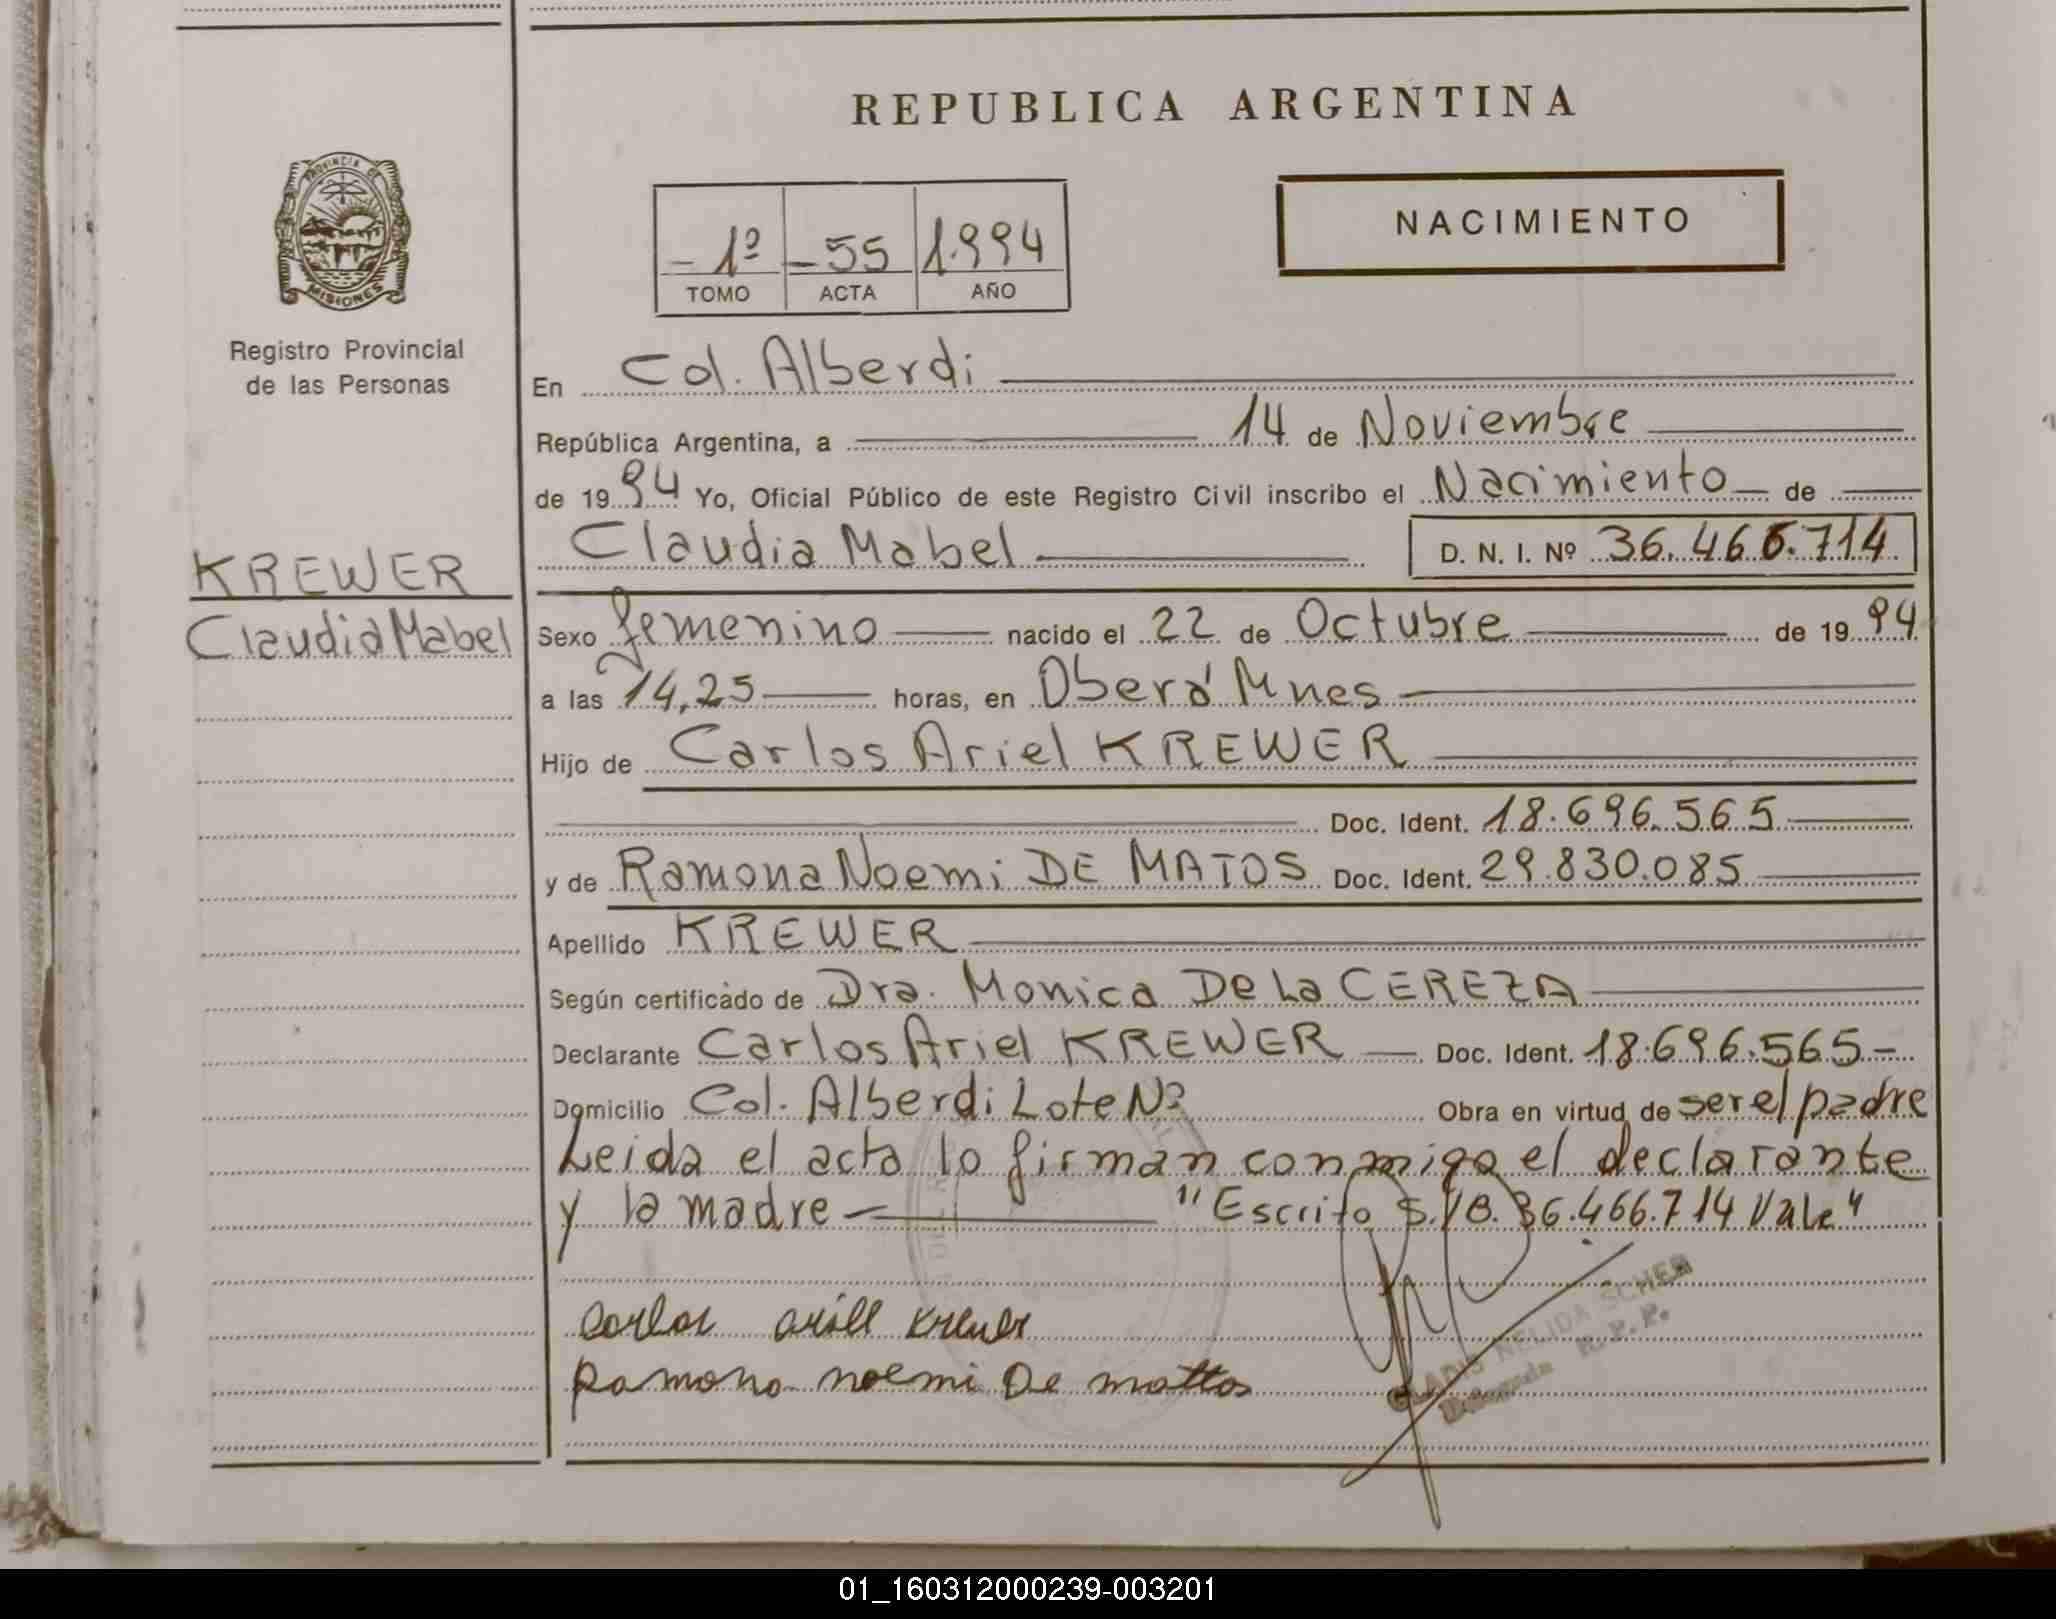 REPUBLICA ARGENTINA
NACIMIENTO
- 1º - 55 1.994
TOMO ACTA AÑO
PROVINCIA DE MISIONES
Registro Provincial
de las Personas
KREWER
Claudia Mabel
En Col. Alberdi
República Argentina, a 14 de Noviembre
de 19 94 Yo, Oficial Público de este Registro Civil inscribo el Nacimiento de
Claudia Mabel D. N. I. Nº 36.466.714
Sexo femenino nacido el 22 de Octubre de 19 94
a las 14,25 horas, en Oberá Mnes
Hijo de Carlos Ariel KREWER
Doc. Ident. 18.696.565
y de Ramona Noemi DE MATOS Doc. Ident. 29.830.085
Apellido KREWER
Según certificado de Dra. Monica De La CEREZA
Declarante Carlos Ariel KREWER Doc. Ident. 18.696.565-
Domicilio Col. Alberdi Lote Nº Obra en virtud de ser el padre
Leida el acta lo firman conmigo el declarante
y la madre "Escrito S./B. 36.466.714 Vale"
Carlos Ariel Krewer
Ramona noemi De mattos
GLADIS NELIDA SCHER
Delegada R.P.P.
01_160312000239-003201